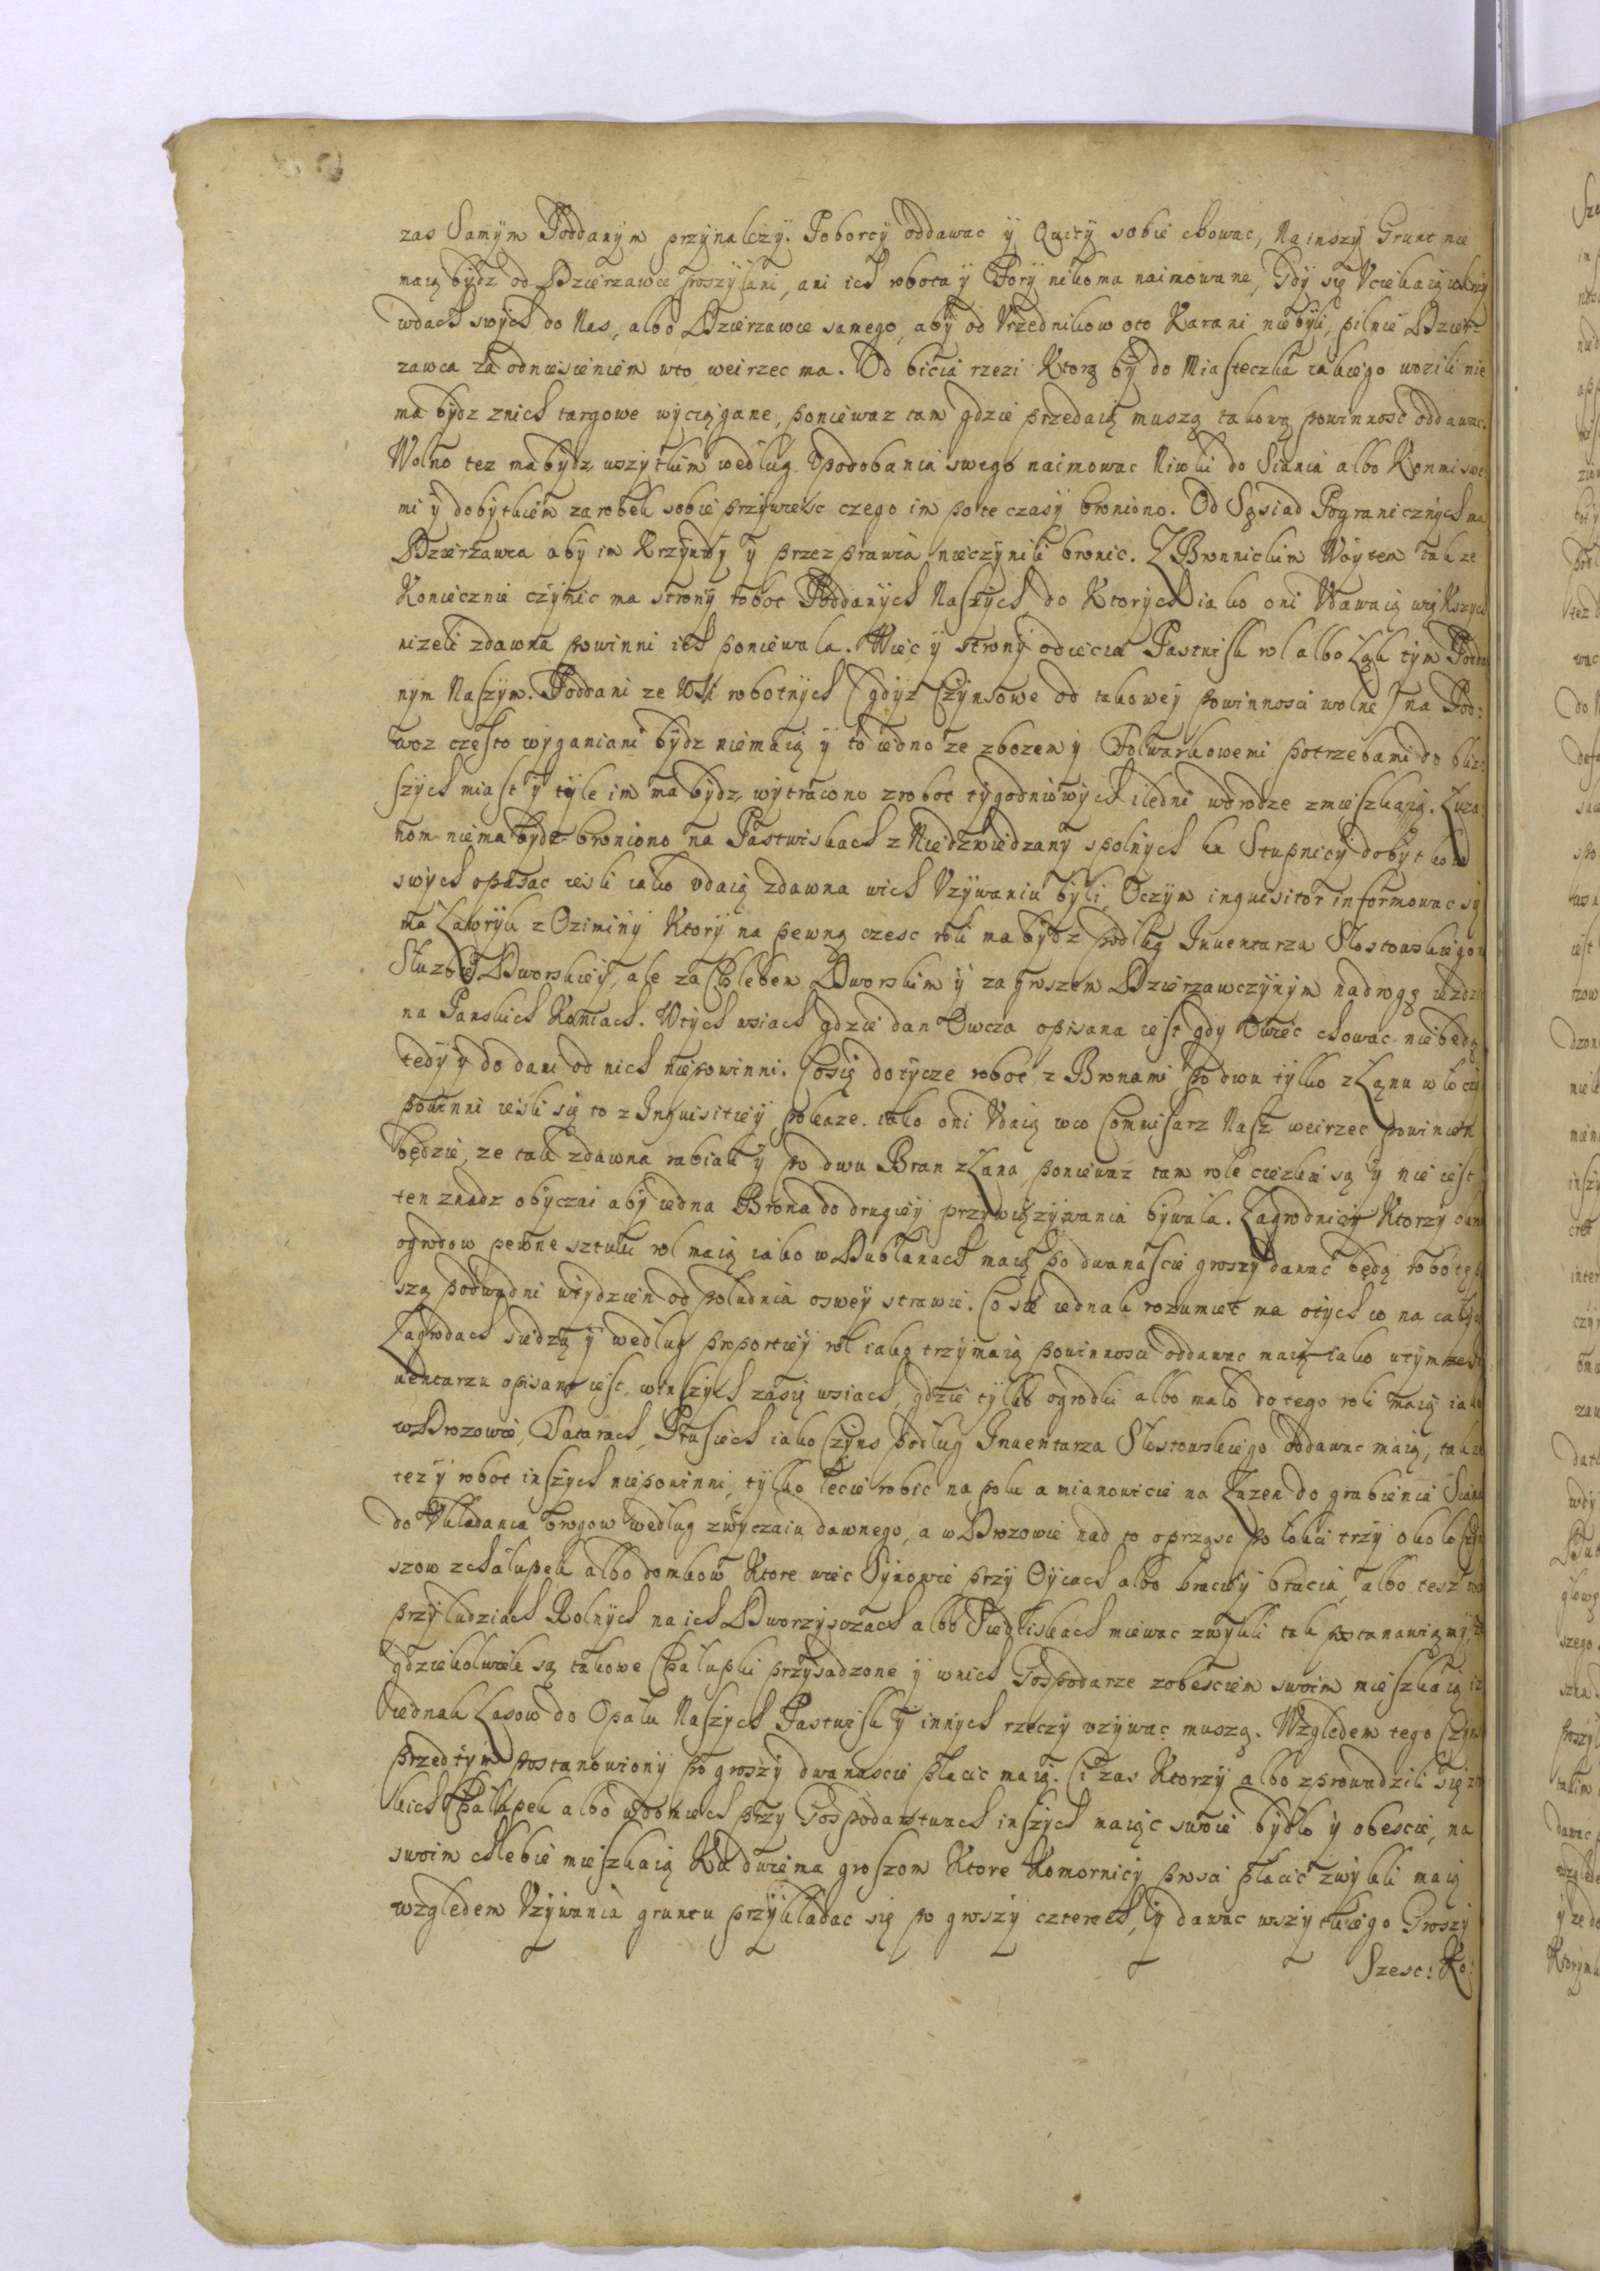 zas Samym Poddanym przynalezy. Poborcy oddawac y Quity sobie chowac, Na inszy Grunt nie
maią bydz od Dzierzawce posyłani, ani ich robota y Fory nikomu naimowane, Gdy się Uciekaią wkrzy
wdach swych do Nas, albo Dzierzawce samego, aby od Urzednikow oto Karani niebyli, pilnie Dzier-
zawca za odniesieniem wto weirzec ma. Od bicia rzezi Ktorą by do Miasteczka iakiego wozili nie
ma bydz znich targowe wyciągane, poniewaz tam gdzie przedaią muszą takową powinnosc oddawac.
Wolno tez ma bydz wszytkim według Upodobania swego naimowac Niwki do Siania albo Konmi swe
mi y dobytkiem zarobek sobie przyniesc czego im po te czasy broniono. Od Sąsiad Pogranicznych ma
Dzierzawca aby im Krzywdy y przezprawia nieczynili bronic. Z Bronnickim Woytem takze
Koniecznie czynic ma strony robot Poddanych Naszych do Ktorych iako oni Udawaią większych
nizeli zdawna powinni ich poniewala. Więc y strony odięcia Pastwisk rol albo Łąk tym Podda
nym Naszym. Poddani ze Wsi robotnych (gdyz Czynsowe od takowey powinnosci wolne) na Pod:
woz często wyganiani bydz niemaią y to iedno ze zbozem y Folwarkowemi potrzebami do bliz:
szych miast y tyle im ma bydz wytrącono zrobot tygodniowych iledni wdrodze zmieszkaią. Luza
nom niema bydz broniono na Pastwiskach z Niedzwiedzany spolnych ku Stupnicy dobytkow
swych opasac iesli iako udaią zdawna wich Uzywaniu byli, Oczym inquisitor informowac się
ma Ławryk z Oziminy Ktory na pewną czesc roli ma bydz podlug Inwentarza Słostowskiego u
Sluzbie Dworskiey, ale za Chlebem Dworskim y za groszem Dzierzawczynym na drogę iezdzic
na Panskich Koniach. Wtych wsiach gdzie dan Owcza opisana iest gdy Owiec chowac nie będą
tedy y do dani od nich niepowinni. Co się dotycze robot z Bronami po dwu tylko z Łanu włoczyc
powinni iesli się to z Inquisitiey pokaze. iako oni Udaią wco Commisarz Nasz weirzec powinien
będzie, ze tak zdawna rabiali y po dwu Bran z Łana, poniewaz tam role cięzkie są y nie iest
ten znadz obyczai aby iedna Brona do drugiey przywięzywania bywala. Zagrodnicy Ktorzy okrom
ogrodow pewne sztuki rol maią iako w Dublanach maią po dwanascie groszy dawac będą robotę
szą podwudni wtydzien od południa oswey strawie. Co się iednak rozumiec ma otych co na całych
Zagrodach siedzą y według proportiey rol iaką trzymaią powinnosci oddawac maią iako wtym In
wentarzu opisano iest, winszych zasię wsiach, gdzie tylko ogrodki albo mało do tego roli maią iako
w Drozowie, Tatarach, Prusiech iako Czyns podlug Inwentarza Słostowskiego oddawac maią, takze
tez y robot inszych niepowinni, tylko lecie robic na polu a mianowicie na Zazen do grabienia Siana
do Układania brogow według zwyczaiu dawnego, a w Drozowie nad to oprząsc po łokci trzy około Czyn
szow zchałupek albo domkow Ktore więc Synowie przy Oycach albo bracia y bracia albo tesz
przy ludziach Rolnych na ich Dworzyszczach albo Siedliskach miewac zwykli tak postanawiamy, ze
gdziekolwiek są takowe Chałupki przysadzone y wnich Gospodarze zobesciem swoim mieszkaią iz
iednak Lasow do Opału Naszych Pastwisk y innych rzeczy uzywac muszą. Względem tego Czyns
przed tym postanowiony po groszy dwanascie płacic maią. Ci zas Ktorzy albo zprowadzili się z
kich Chałupek albo wdomiech przy Gospodarstwach inszych maiąc swoie bydło y obescie, na
swoim chlebie mieszkaią Ku dwiema groszom Ktore Komornicy prosci płacic zwykli maią
względem Uzywania gruntu przykładac się po groszy czterech, y dawac wszytkiego Groszy
Szesc: Ko: